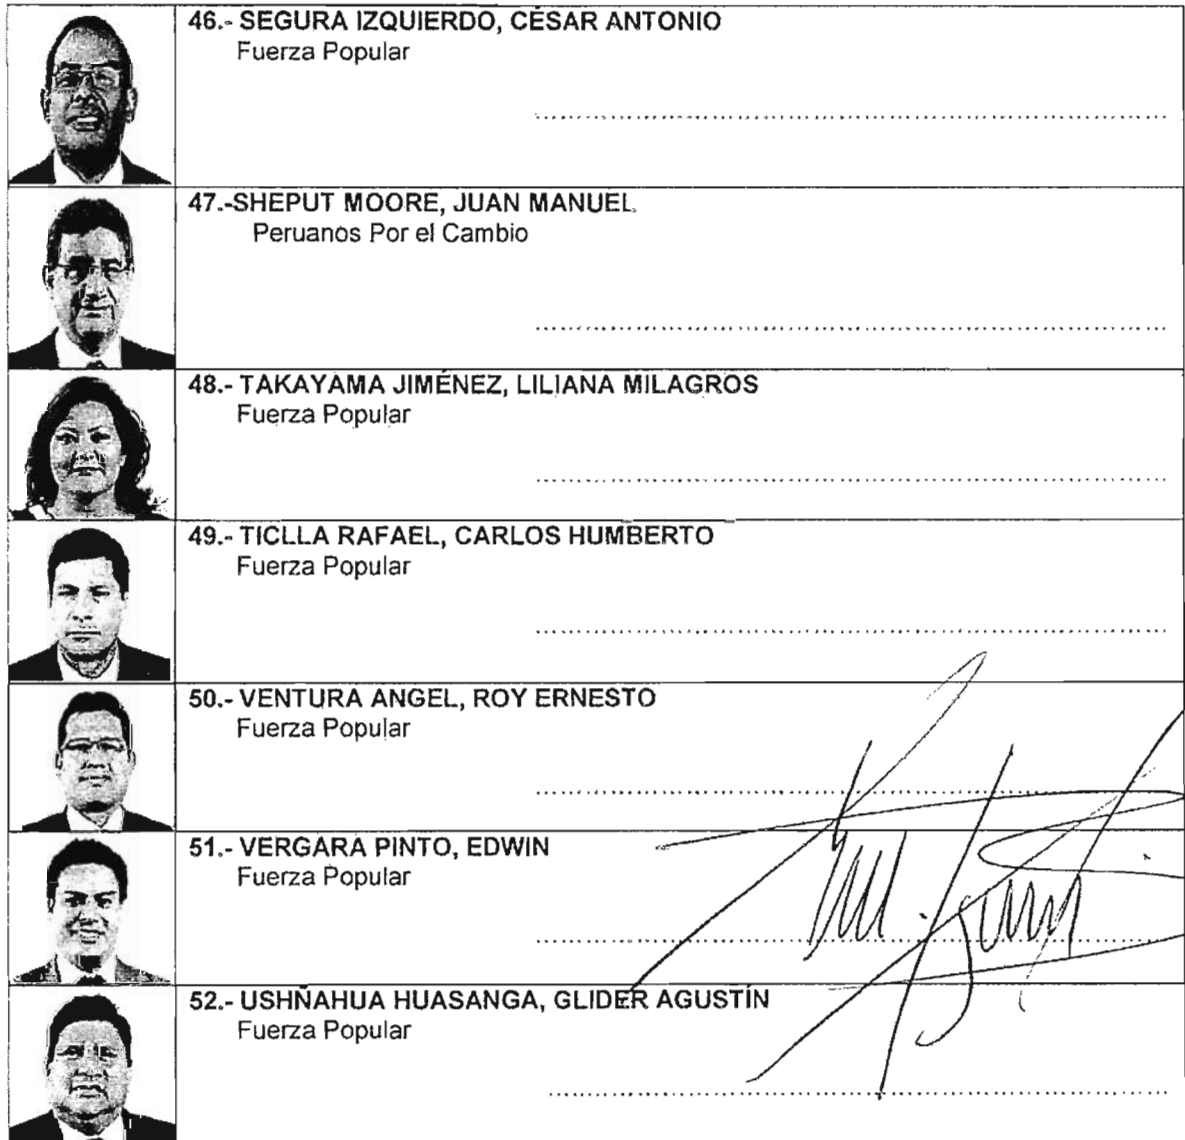 46.- SEGURA IZQUIERDO, CÉSAR ANTONIO
Fuerza Popular
47.-SHEPUT MOORE, JUAN MANUEL
Peruanos Por el Cambio
48.- TAKAYAMA JIMÉNEZ, LILIANA MILAGROS
Fuerza Popular
49.- TICLLA RAFAEL, CARLOS HUMBERTO
Fuerza Popular
50.- VENTURA ANGEL, ROY ERNESTO
Fuerza Popular
51.- VERGARA PINTO, EDWIN
Fuerza Popular
52.- USHÑAHUA HUASANGA, GLIDER AGUSTÍN
Fuerza Popular